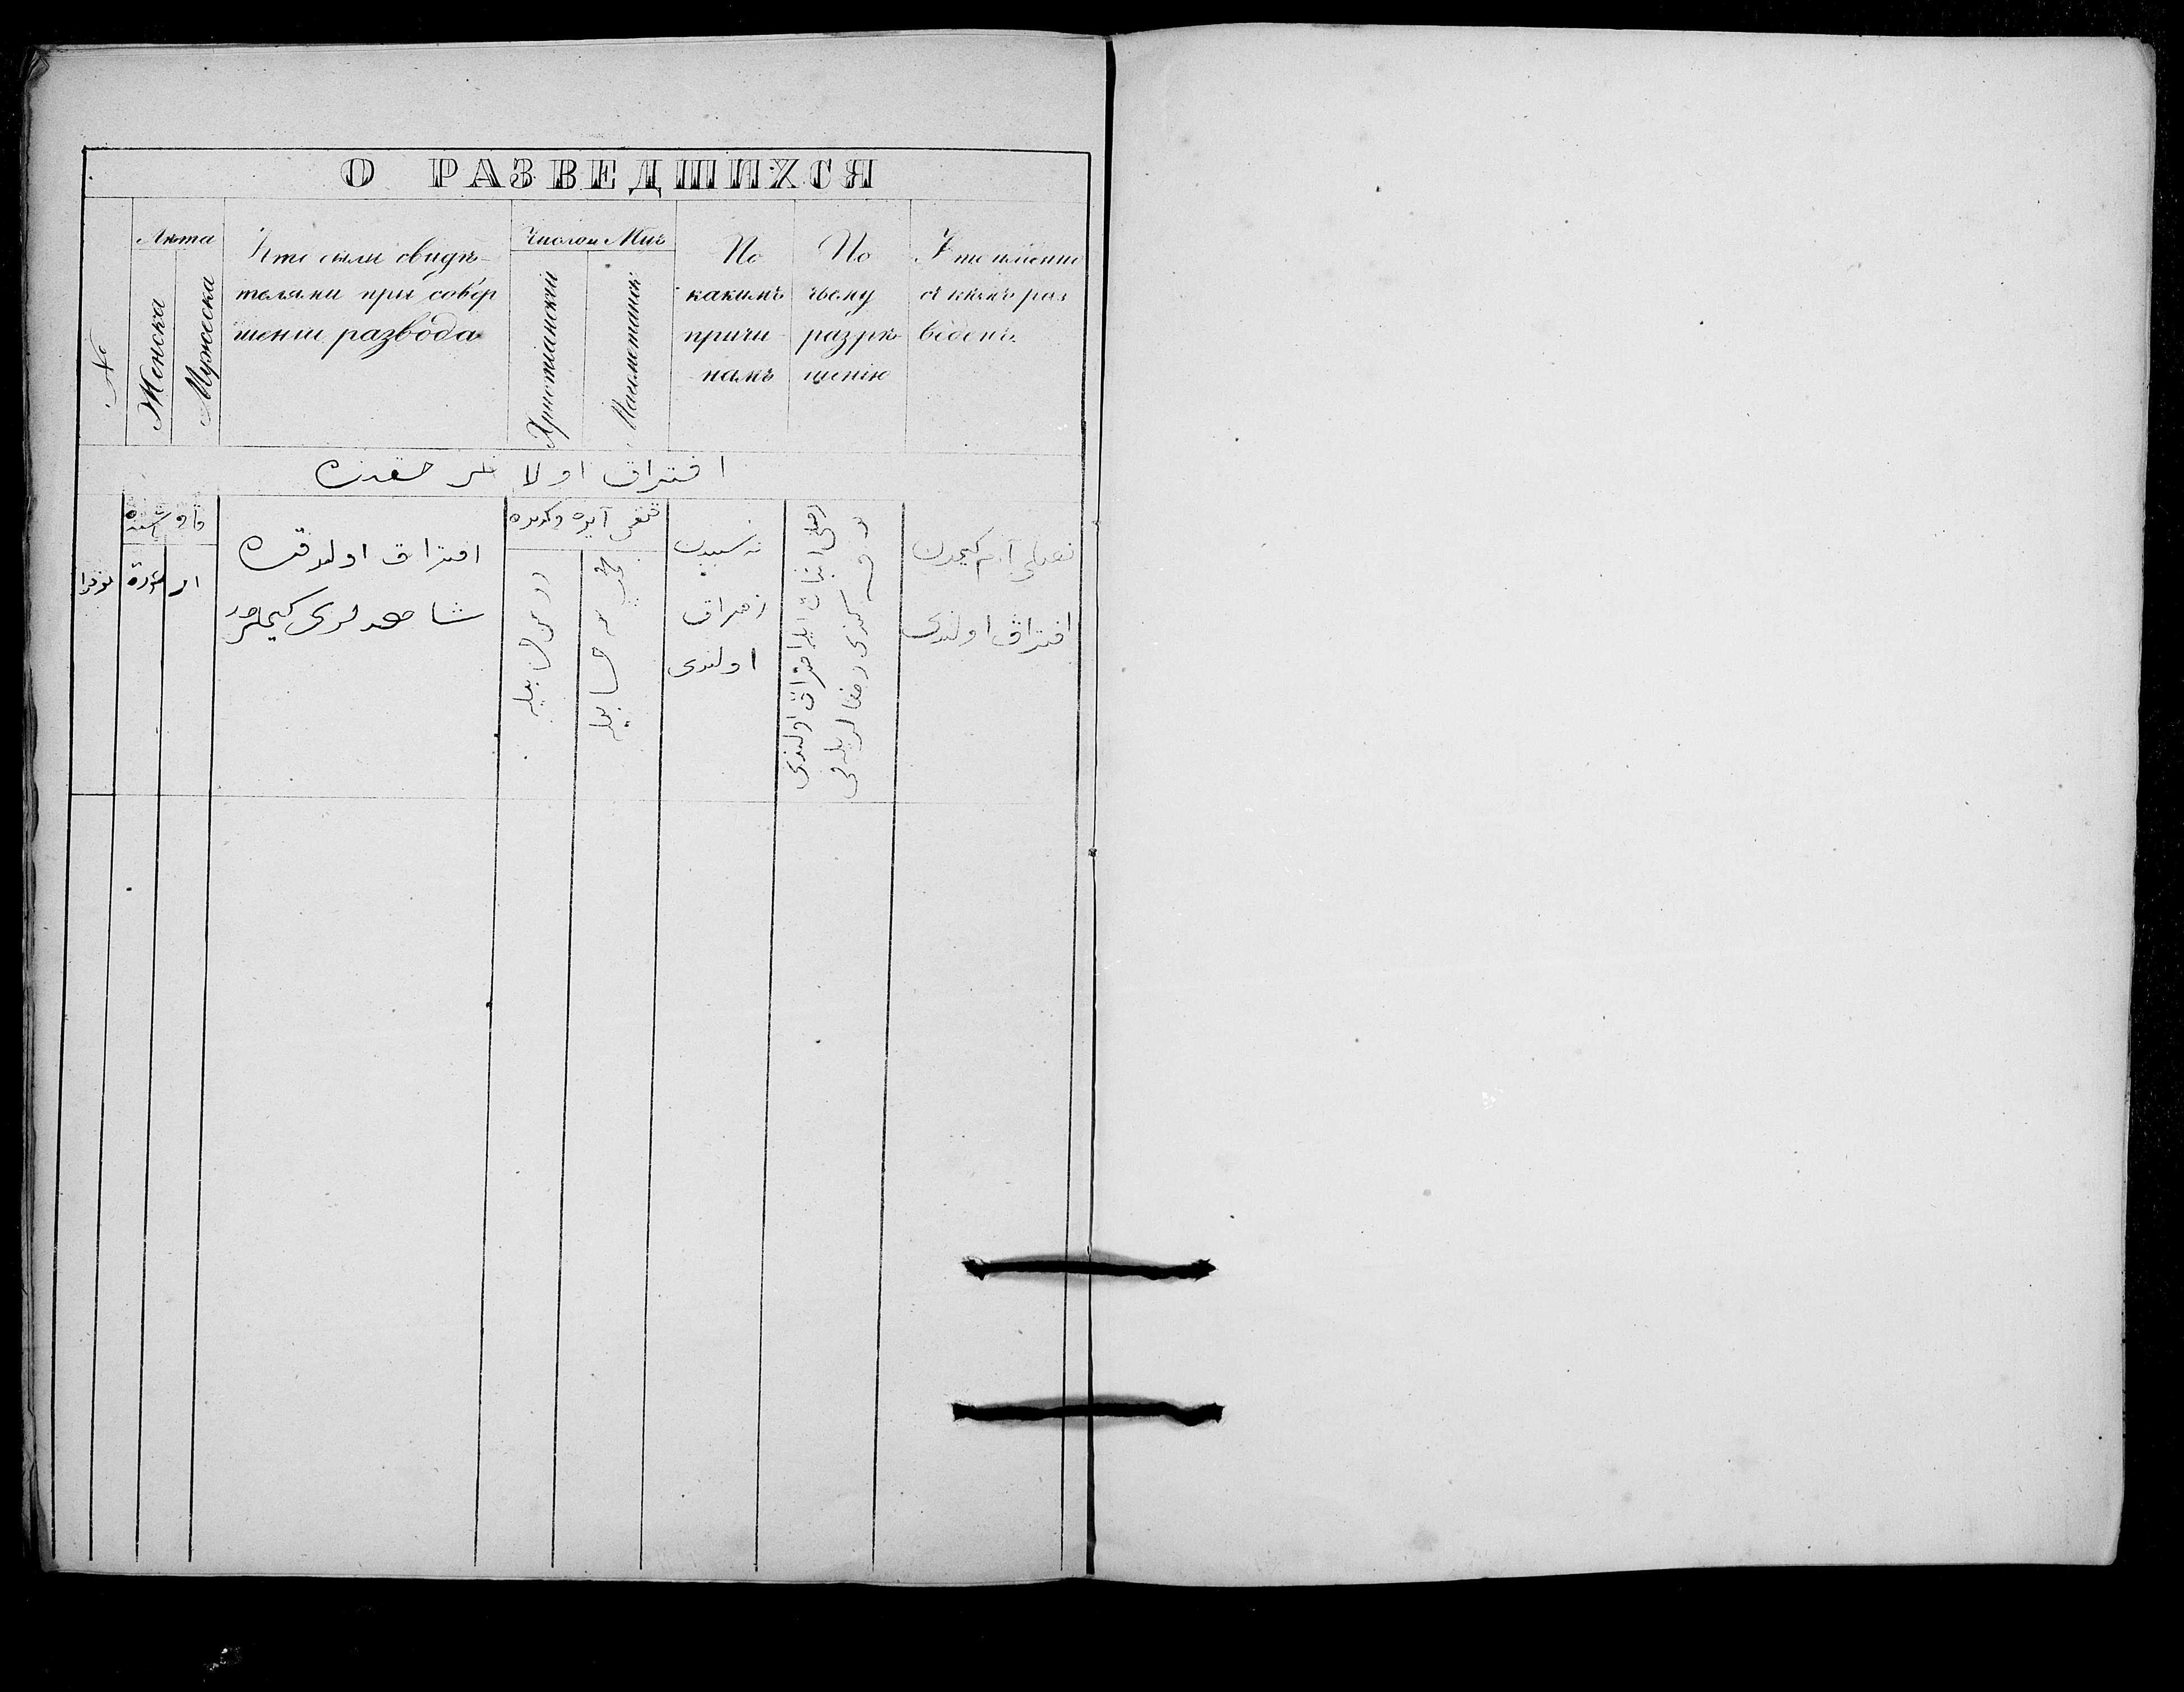 О РАЗВЕДШИХСЯ
№
Лѣта
Женска
Мужеска
Кто были свидѣ-
телями при совер
шеніи развода
Число и Мцъ
Христіанскій
Магометанск
По
какимъ
причи-
намъ
По
чьему
разрѣ-
шенію
Кто именно
съ кѣмъ раз
веденъ.
افتراق اولانلر حقنده
عورة
ار
افتراق اولدقده
شاهدلری کیملردر
آیده
نه سببدن
افتراق
اولندی
افتراق اولندی
آدم کیمدن
افتراق اولندی